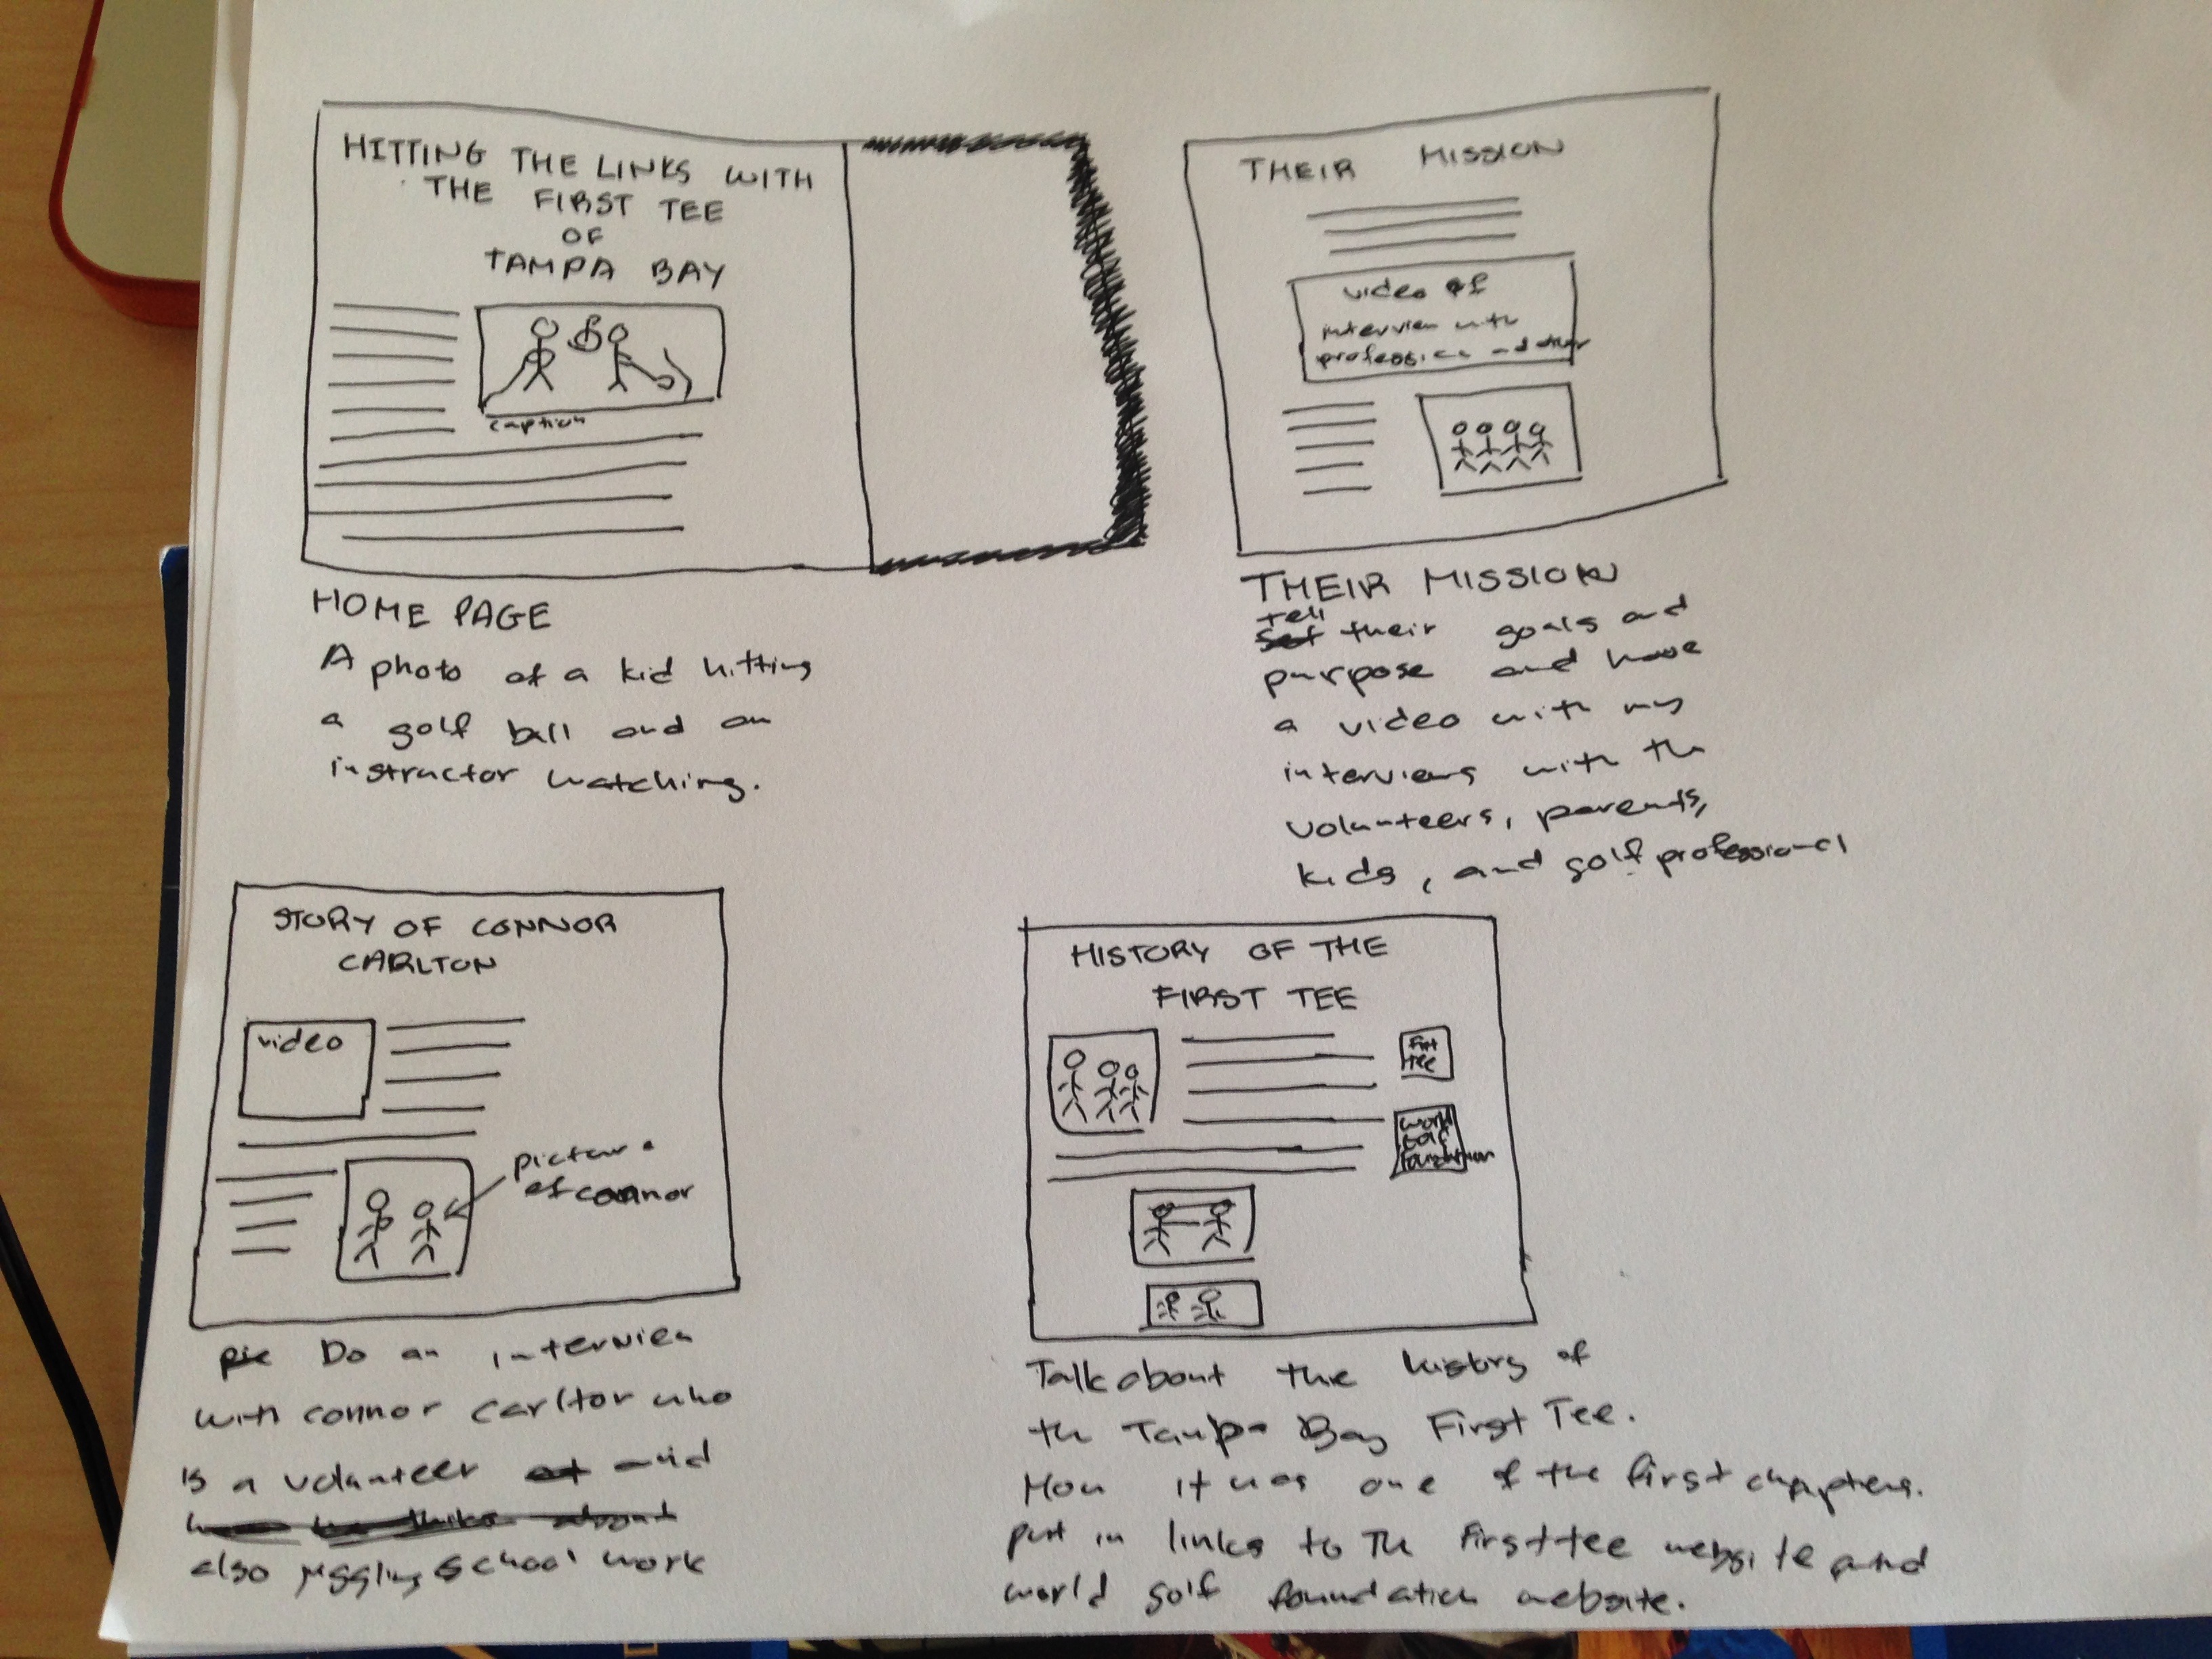 HITTING THE LINKS WITH
THE FIRST TEE
OF
TAMPA BAY
caption
HOME PAGE
A photo of a kid hitting
a golf ball and an
instructor watching.
THEIR MISSION
video of
interview with
THEIR MISSION
tell
Set their goals and
purpose and have
a video with my
interviews with the
volunteers, parents,
kids, and golf professional
STORY OF CONNOR
CARLTON
video
picture
of connor
pic Do an interview
with connor carlton who
is a volunteer at and
also juggling school work
HISTORY OF THE
FIRST TEE
First
tee
world
golf
foundation
Talk about the history of
the Tampa Bay First Tee.
How it was one of the first chapters.
put in links to the first tee website and
world golf foundation website.